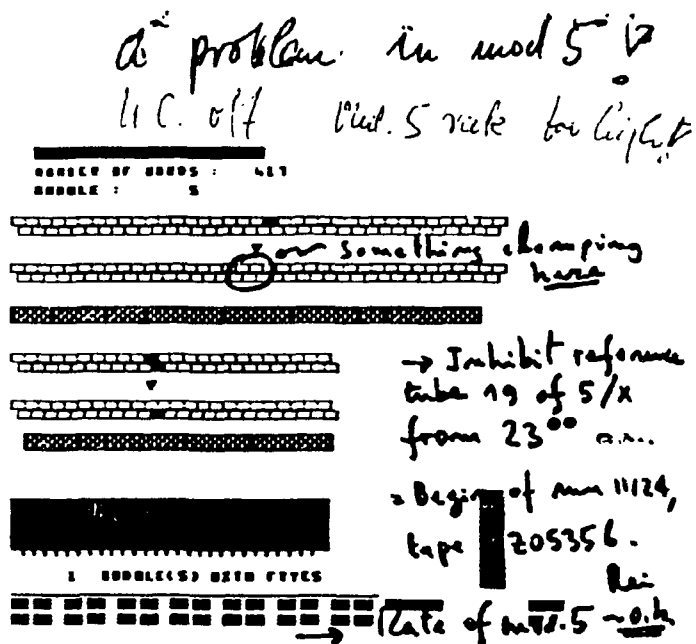 a problem in mod 5
H.C. off Mod. 5 rate too high
NUMBER OF WORDS : 417
MODULE : 5
something changing
here
→ Inhibit reference
tube 19 of 5/X
from 23°° a.m.
= Begin of run 11124,
tape Z05356.
1 MODULE(S) WITH FTYES
→ Rate of mod. 5 ~ o.k.